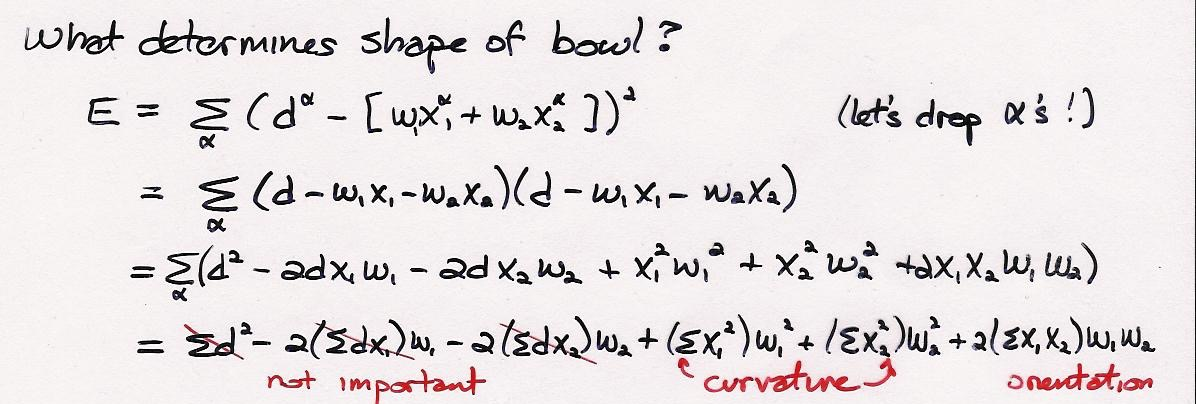 What determines shape of bowl?
E = Σ_α (d^α - [w₁x₁^α + w₂x₂^α])² (let's drop α's!)
= Σ_α (d - w₁x₁ - w₂x₂)(d - w₁x₁ - w₂x₂)
= Σ_α (d² - 2dx₁w₁ - 2dx₂w₂ + x₁²w₁² + x₂²w₂² + 2x₁x₂w₁w₂)
= Σd² - 2(Σdx₁)w₁ - 2(Σdx₂)w₂ + (Σx₁²)w₁² + (Σx₂²)w₂² + 2(Σx₁x₂)w₁w₂
not important curvature orientation